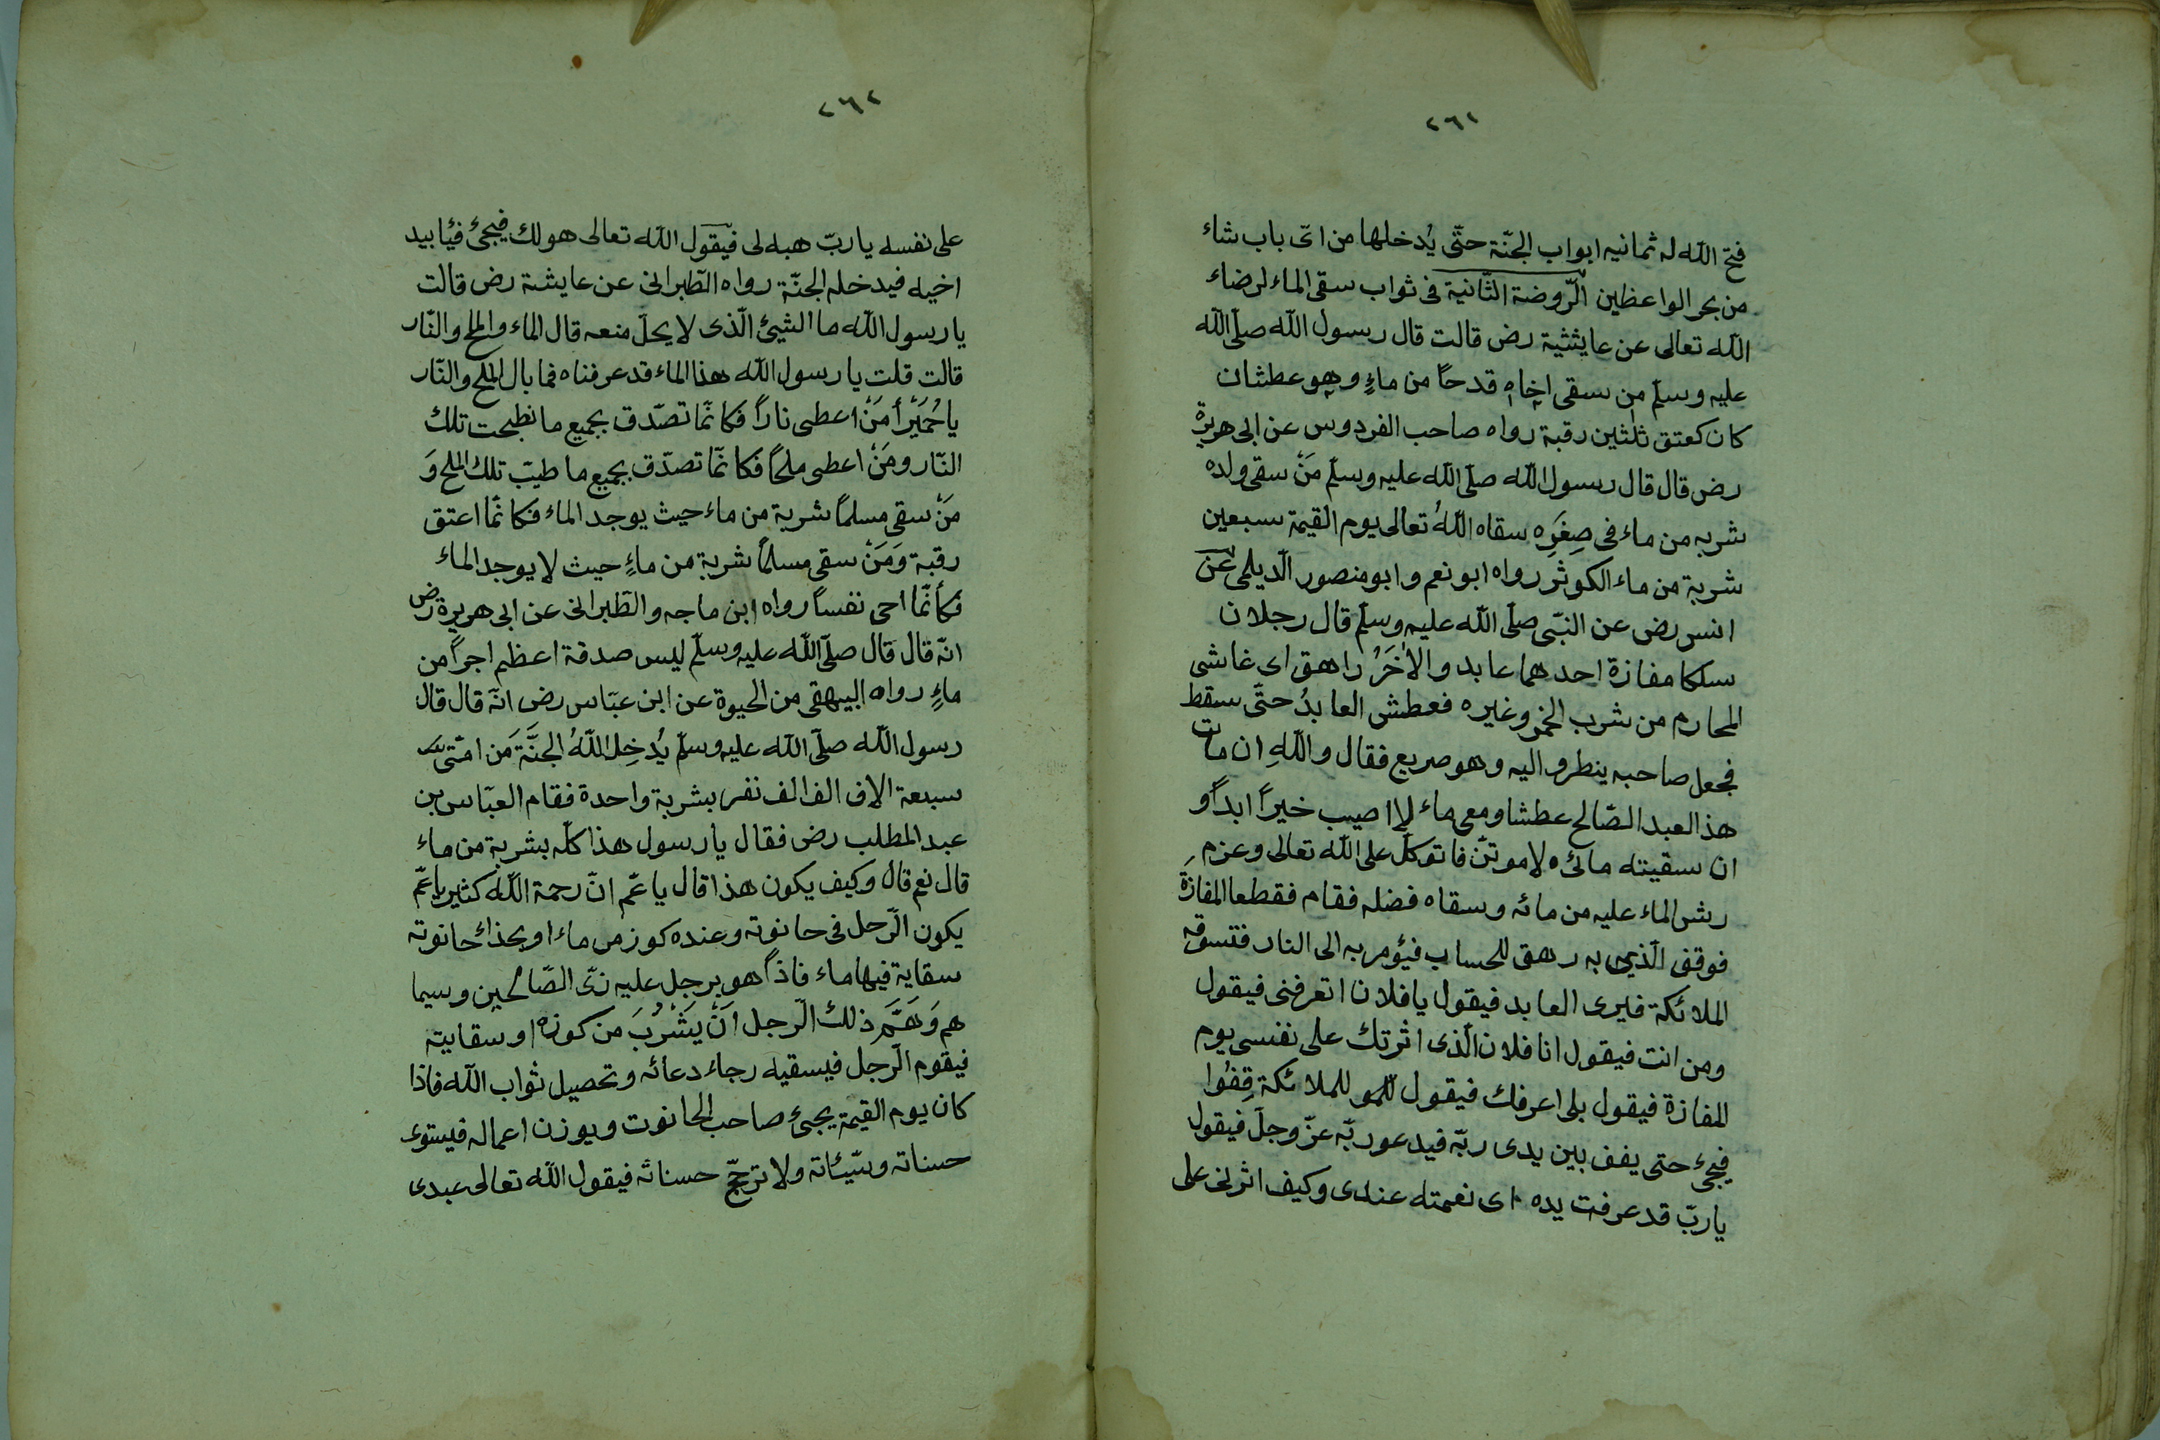 ٢٦١
فتح الله له ثمانيه ابواب الجنّة حتّى يُدخلها من اىّ باب شاء
من بحر الواعظين الرّوضة الثّانية فى ثواب سقى الماء لرضاء
الله تعالى عن عايشة رض قالت قال رسول الله صلّى الله
عليه وسلّم من سقى اخاه قدحاً من ماءٍ وهو عطشان
كان كعتق ثلثين رقبة رواه صاحب الفردوس عن ابى هريرة
رض قال قال رسول الله صلّى الله عليه وسلّم مَنْ سقى ولده
شربه من ماء فى صِغَرِه سقاه اللهُ تعالى يوم القيمة سبعين
شربة من ماء الكوثر رواه ابو نعم وابو منصور الدّيلمى عن
انس رض عن النبّى صلّى الله عليه وسلّم قال رجلان
سلكا مفازة احدهما عابد والاٰخَرُ راهق اى غاشى
المحارم من شرب الخمر وغيره فعطش العابدُ حتّى سقط
فجعل صاحبه ينظر واليه وهو صريع فقال واللهِ ان مات
هذ العبد الصّالح عطشا ومعى ماء لا اصيب خيراً ابداً و
ان سقيته مائى لاموتنّ فاتوكّل على الله تعالى وعزم
رش الماء عليه من مائه وسقاه فضله فقام فقطعا المفازَة
فوقف الّذى به رهق للحساب فيؤمر به الى النار فتسوقه
الملائكة فيرى العابد فيقول يا فلان اتعرفنى فيقول
ومن انت فيقول انا فلان الّذى اثرتك على نفسى يوم
المفازة فيقول بلى اعرفك فيقول للملائكة قِفُوا
فيجئ حتى يفف بين يدى ربّه فيدعو ربّه عزّ وجلّ فيقول
يا ربّ قد عرفت يده اى نعمته عندى وكيف اثرنى على
٢٦٢
على نفسه يا ربّ هبه لى فيقول الله تعالى هو لك فيجئ فيأ بيد
اخيه فيدخله الجنّة رواه الطّبرانى عن عايشة رض قالت
يا رسول الله ما الشيئ الّذى لا يحلّ منعه قال الماء والملح والنّار
قالت قلت يا رسول الله هذا الماء قد عرفناه فما بال الملح والنّار
يا حُمَيْرأ مَنْ اعطى ناراً فكانّما تصّدق بجميع ما نطبحت تلك
النّار ومَنْ اعطى ملحاً فكانّما تصدّق بجميع ما طيبّ تلك الملح وَ
مَنْ سقى مسلماً شربة من ماء حيث يوجد الماء فكانّما اعتق
رقبة وَمَنْ سقى مسلماً شربة من ماءٍ حيث لا يوجد الماء
فكأنّما احى نفساً رواه ابن ماجه والطّبرانى عن ابى هريرة رض
انّه قال قال صلّى الله عليه وسلّم ليس صدقة اعظم اجراً من
ماءٍ رواه البيهقى من الحيوة عن ابن عبّاس رض انّه قال قال
رسول الله صلّى الله عليه وسلّم يُدخِل اللهُ الجنَّةَ مَن امّتى
سبعة الاف الف الف نفر بشربة واحدة فقام العبّاس بن
عبد المطلب رض فقال يا رسول هذا كلّه بشربة من ماء
قال نعم قال وكيف يكون هذا قال يا عّم انّ رحمة الله كثير يا عّم
يكون الرّجل فى حانوته وعنده كوز من ماء او بحذائ حانوته
سقاية فيها ماء فاذاً هو برجل عليه زىّ الصّالحين وسيما
هم وَهَمَّ ذلك الرّجل اَنْ يَشْرُبَ من كوزه او سقايته
فيقوم الرّجل فيسقيه رجاء دعائه وتحصيل ثواب الله فاذا
كان يوم القيمة يجئ صاحب الحانوت ويوزن اعماله فيستوى
حسناته وسّيئاته ولا ترجّح حسناته فيقول الله تعالى عبدى